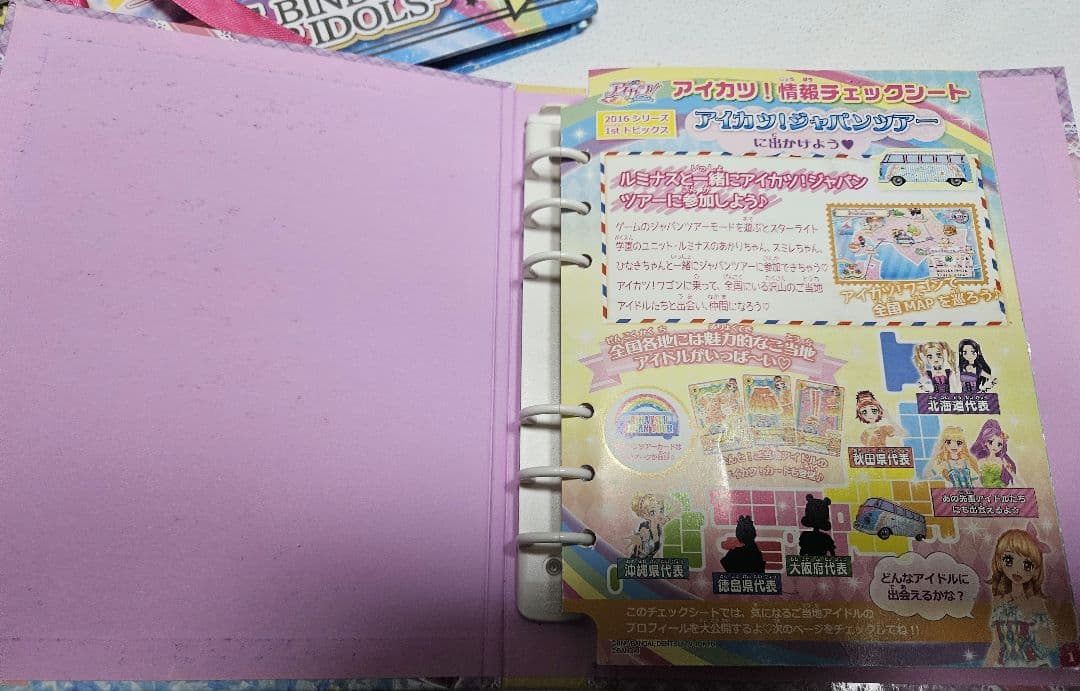 BIND
IDOLS
アイカツ!
アイカツ！情報チェックシート
2016 シリーズ
1st トピックス
アイカツ！ジャパンツアー
に出かけよう♥
ルミナスと一緒にアイカツ！ジャパン
ツアーに参加しよう♪
ゲームのジャパンツアーモードを遊ぶとスターライト
学園のユニット・ルミナスのあかりちゃん、スミレちゃん、
ひなきちゃんと一緒にジャパンツアーに参加できちゃう♡
アイカツ！ワゴンに乗って、全国にいる沢山のご当地
アイドルたちと出会い、仲間になろう♡
アイカツ！ワゴンで
全国 MAP を巡ろう♪
全国各地には魅力的なご当地
アイドルがいっぱ〜い♡
北海道代表
秋田県代表
あの先輩アイドルたち
にも出会えるよ☆
沖縄県代表
徳島県代表
大阪府代表
どんなアイドルに
出会えるかな？
このチェックシートでは、気になるご当地アイドルの
プロフィールを大公開するよ♡次のページをチェックしてね！！
1